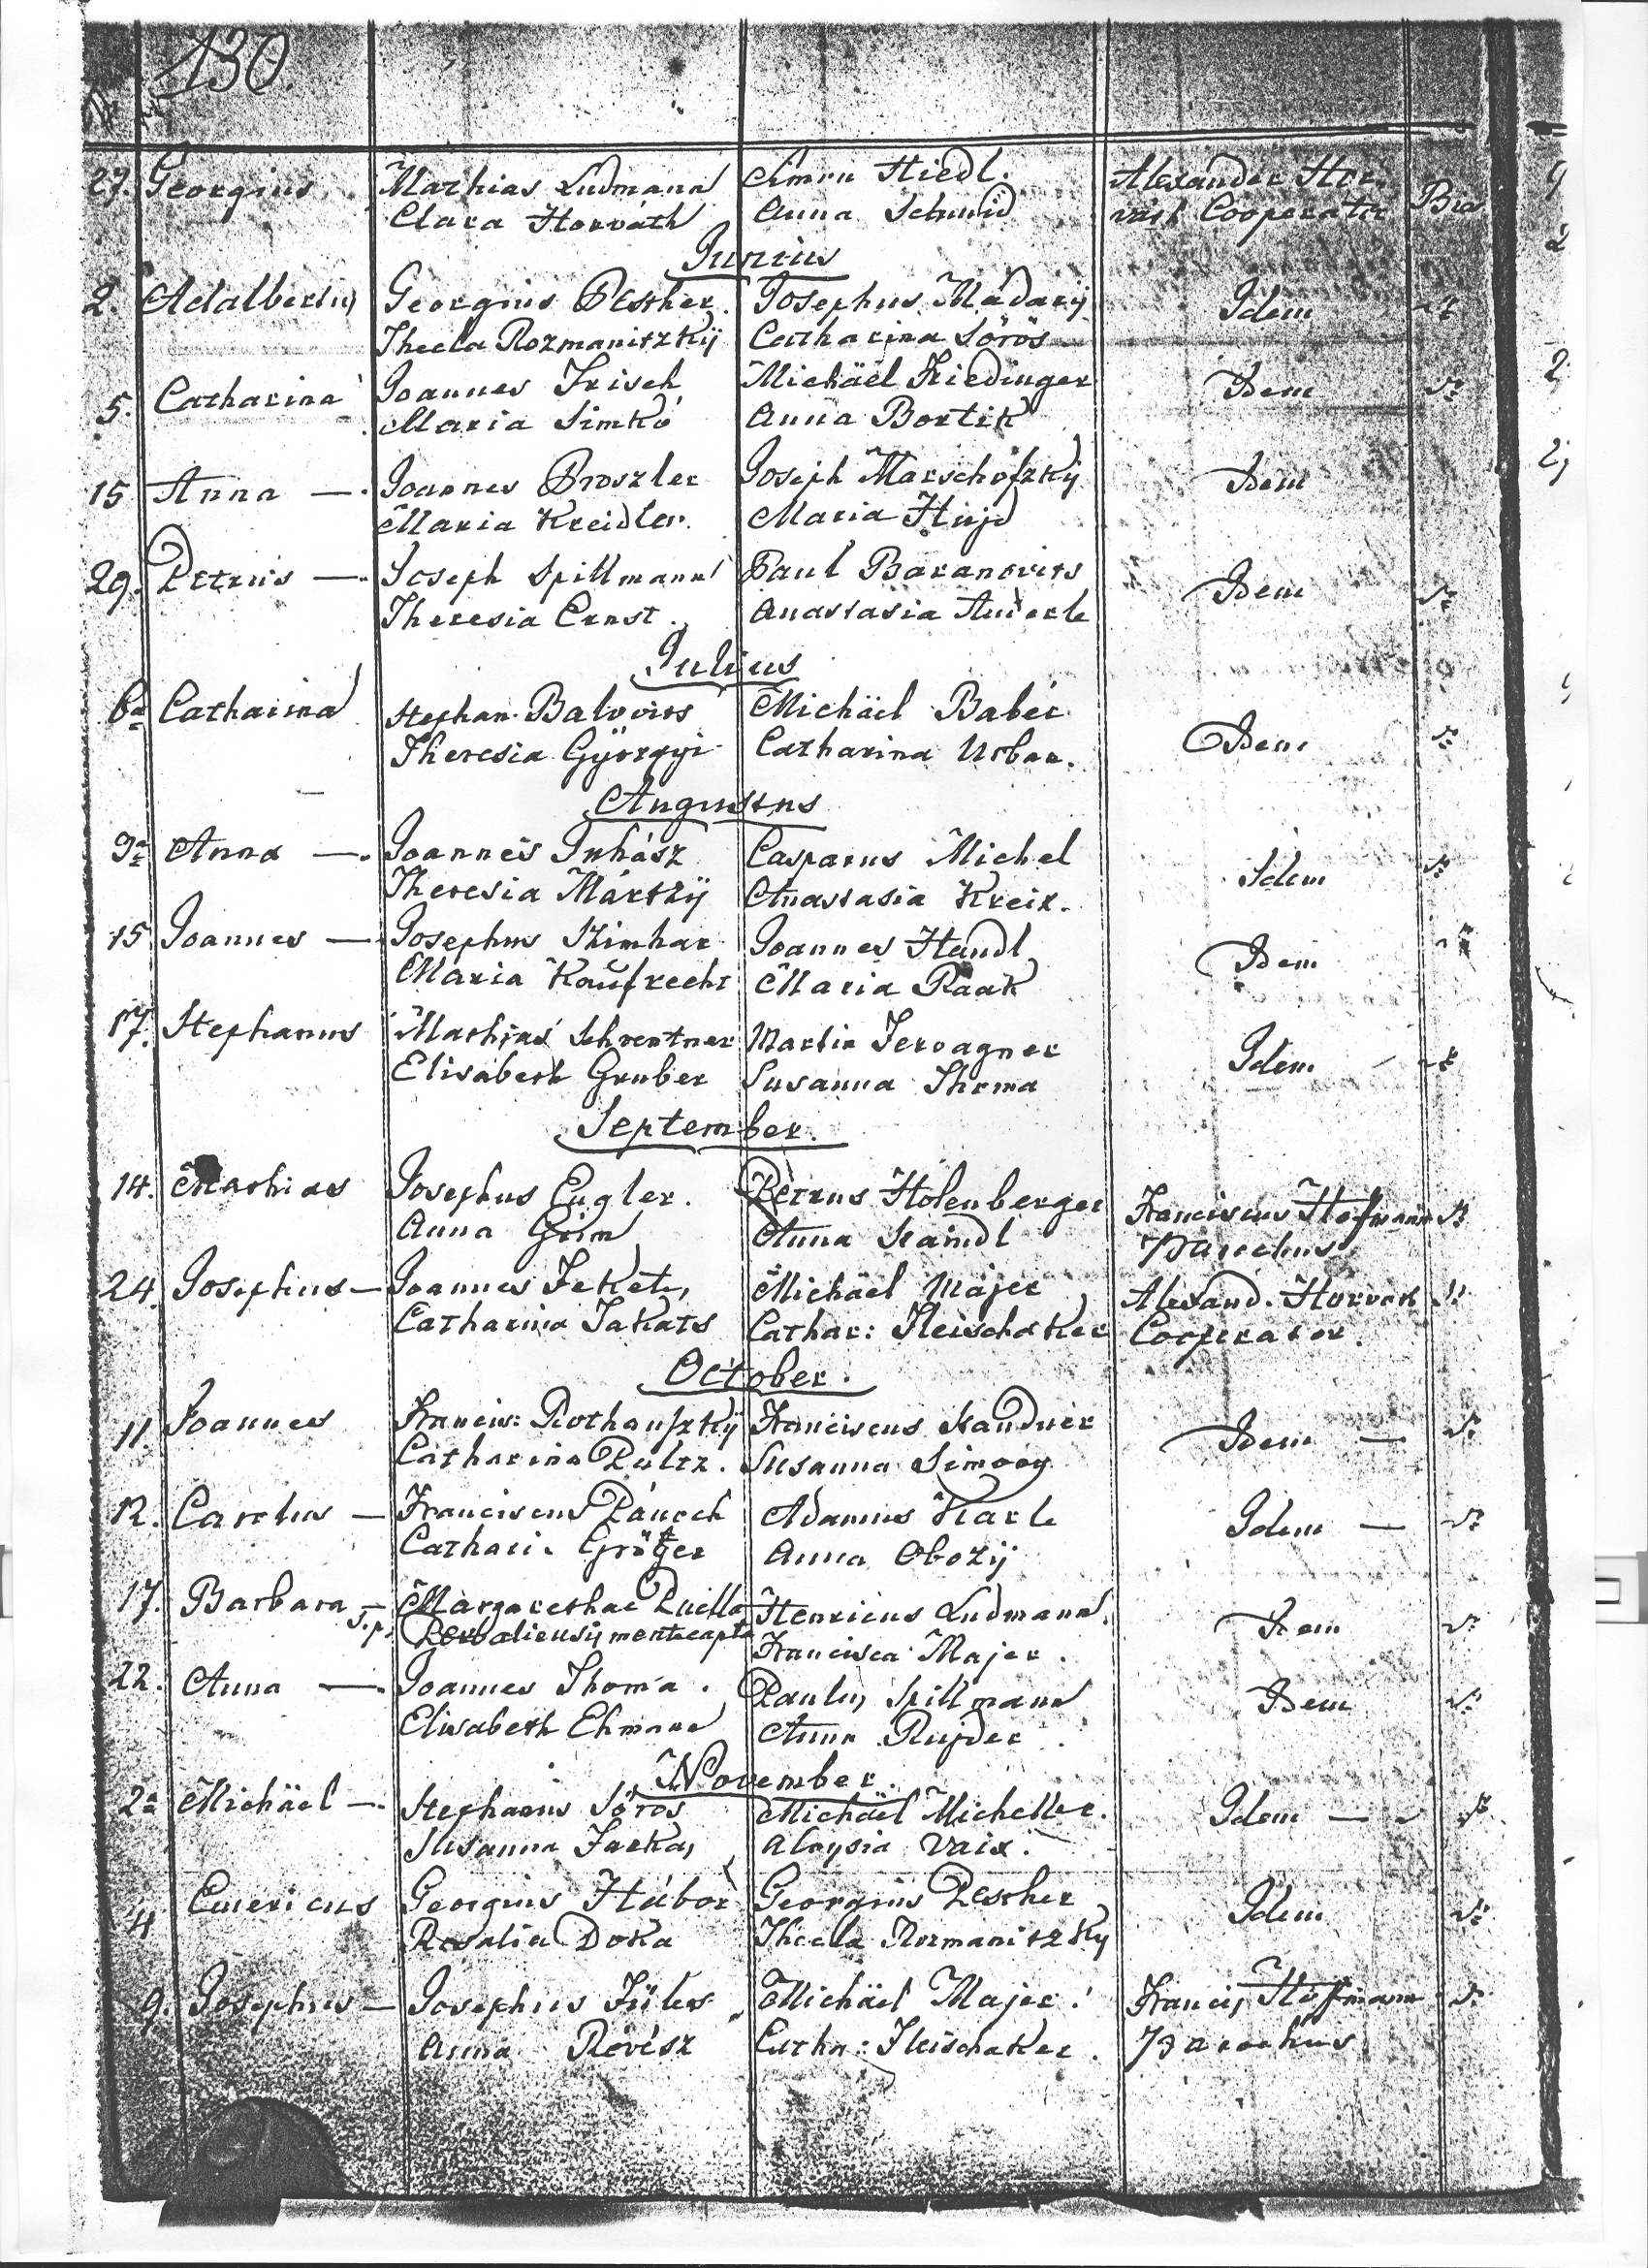 130.
27. Georgius Mathias Ludmann Simon Hiedl. Alexander Hor
Clara Horváth Anna Schmid váth Cooperator
Junius
2. Adalbertus Georgius Pescher. Josephus Mádarÿ Idem
Thecla Rozmanitzkÿ Catharina Sörös
5. Catharina Joannes Frisch Michäel Friedinger Idem
Maria Simkó Anna Bortik
15 Anna —. Joannes Broszler Joseph Marschofzkÿ Idem
Maria Kreidler. Maria Hujd
29. Petrus —. Joseph Spillmann Paul Baranovits Idem
Theresia Ernst. Anastasia Auderle
Julius
6a Catharina Stephan. Balovits Michäel Babéc Idem
Theresia Györgyi Catharina Urban.
Augustus
9a Anna —. Joannes Juhász Casparus Michel Idem
Theresia Mártzÿ Anastasia Kreix.
15. Joannes — Josephus Stimhar Joannes Handl Idem
Maria Kaufrecht Maria Raak
17. Stephanus Mathias Schrentner Martin Fervagner Idem
Elisabeth Gruber Susanna Thoma
September.
14. Mathias Josephus Eugler. Petrus Holenberger Franciscus Hofmann
Anna Grim Anna Staindl Parochus
24. Josephus — Joannes Fekete, Michäel Majer Alexand. Horvath
Catharina Takats Cathar: Fleischaker Cooperator.
October.
11. Joannes Francis: Rothaufzkÿ Franciscus Standner Idem —
Catharina Pultz. Susanna Simon
12. Carolus — Franciscus Páurch Adamus Karle Idem —
Cathari. Gröger Anna Obozÿ
17. Barbara — Margarethae Puella Henricus Ludmann. Idem
S.p. mentecapta Francisca Majer.
22. Anna —. Joannes Thoma. Paulus Spillmann Idem
Elisabeth Ehmann Anna Rujder.
November.
2a Michäel —. Stephanus Sörös Michäel Micheller. Idem —
Susanna Farkas, Aloysia Vaix.
4 Emericus Georgius Hábor Georgius Pescher Idem
Rosalia Doka Thecla Rozmanitzky
9. Josephus — Josephus Füles Michäel Majer. Francis, Hoffmann
Anna Révész Catha: Fleischaker. Parochus